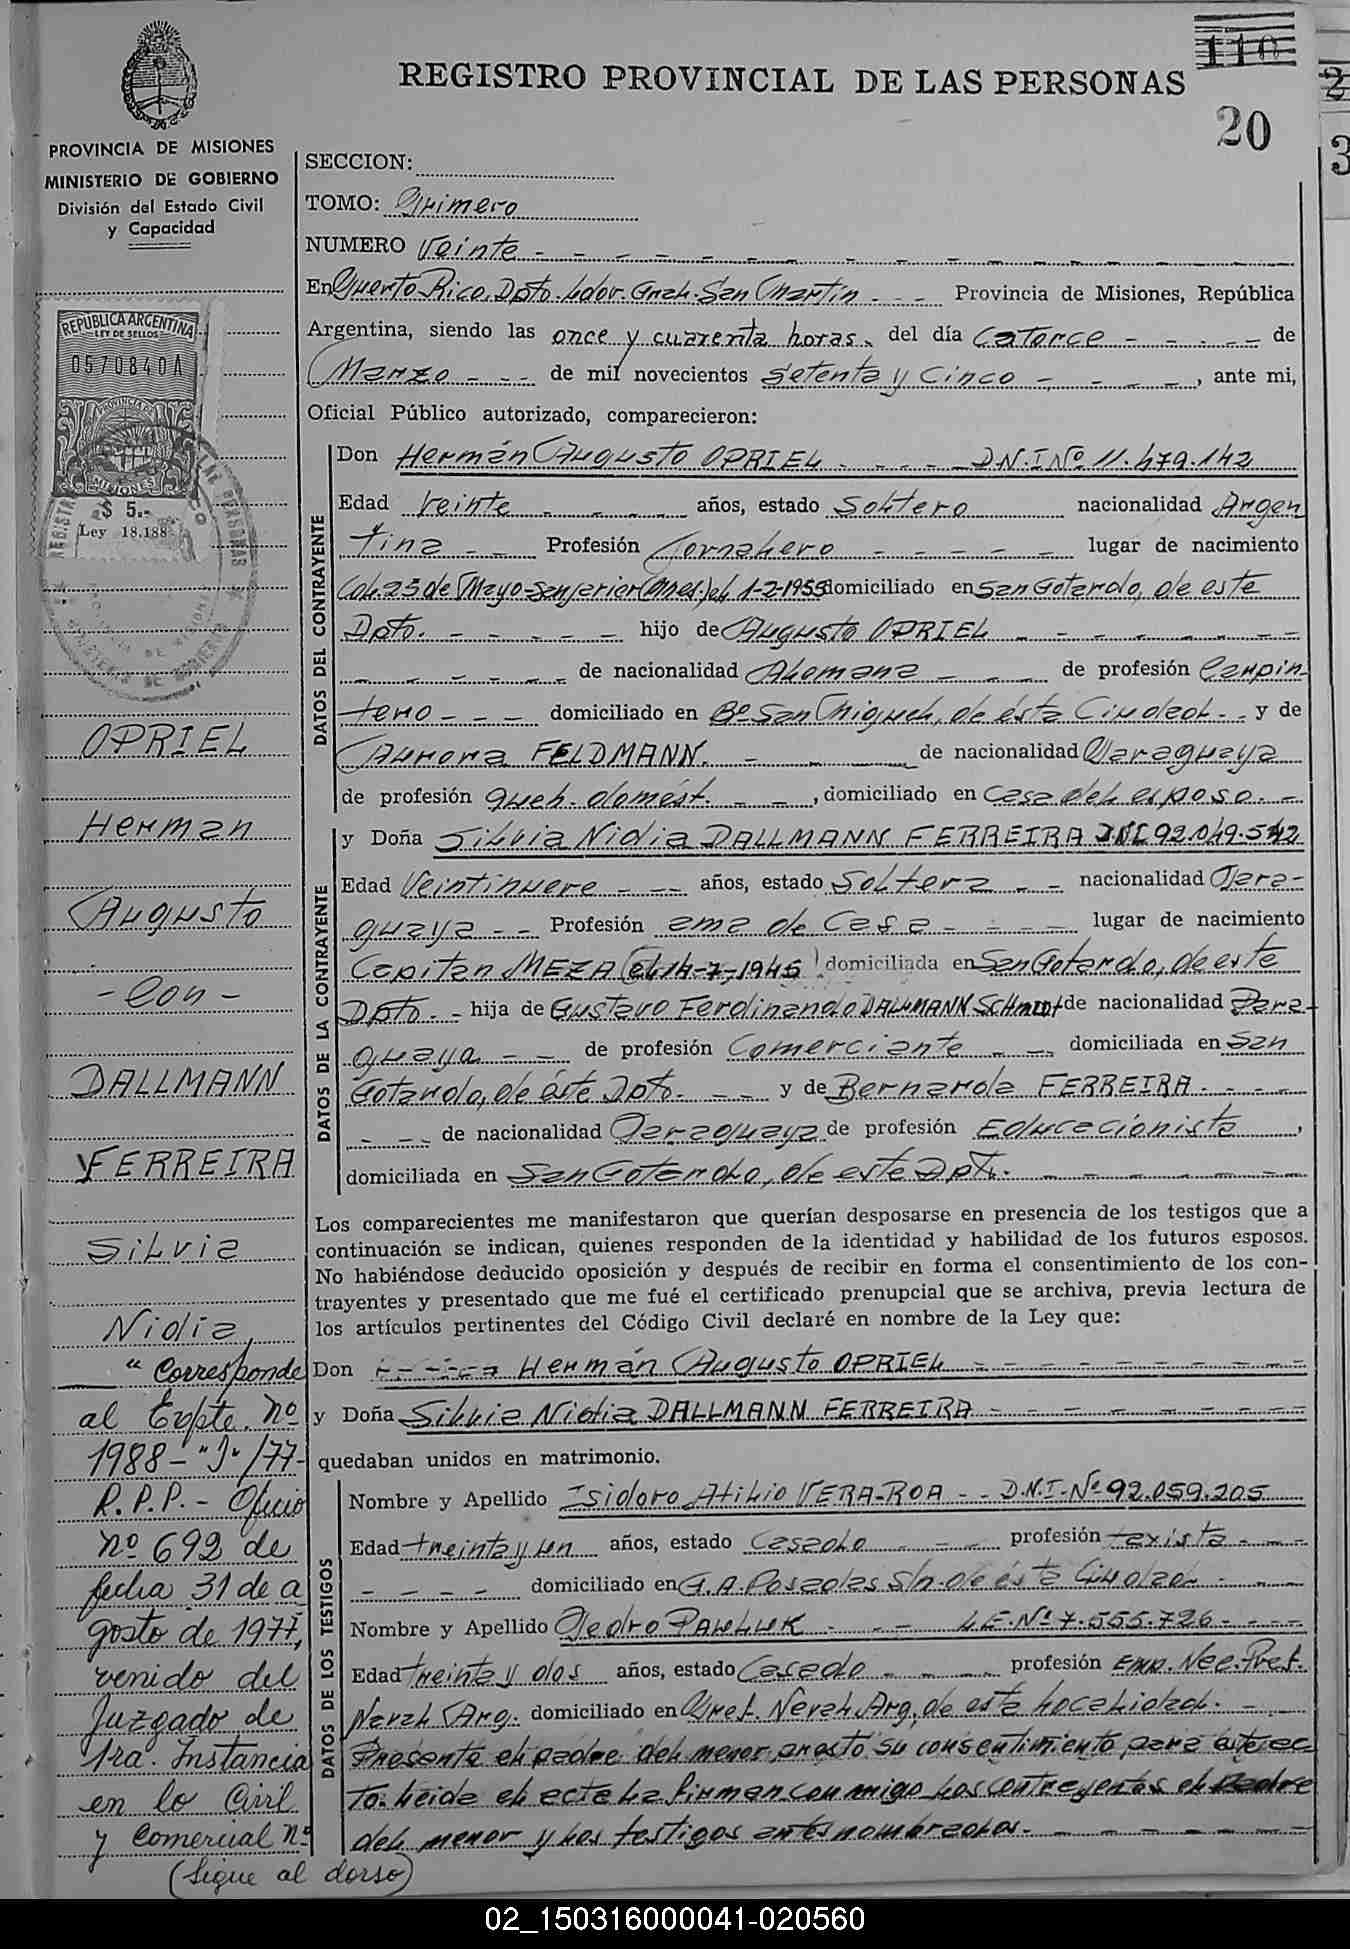 110
REGISTRO PROVINCIAL DE LAS PERSONAS
20
PROVINCIA DE MISIONES
MINISTERIO DE GOBIERNO
División del Estado Civil
y Capacidad
REPUBLICA ARGENTINA
LEY DE SELLOS
0570840A
PROVINCIA DE
MISIONES
$ 5.-
Ley 18.188
OPRIEL
Herman
Augusto
- Con -
DALLMANN
FERREIRA
Silvia
Nidia
" Corresponde
al Expte. nº
1988-"J"/77-
R.P.P.- Oficio
nº 692 de
fecha 31 de a
gosto de 1977,
venido del
Juzgado de
1ra. Instancia
en lo Civil
y Comercial nº
(Sigue al dorso)
SECCION:
TOMO: Primero
NUMERO Veinte
En Puerto Rico, Dpto. Ldor. Gral. San Martín - - - Provincia de Misiones, República
Argentina, siendo las once y cuarenta horas. del día Catorce - - - - de
Marzo - - - de mil novecientos setenta y Cinco - - - -, ante mi,
Oficial Público autorizado, comparecieron:
DATOS DEL CONTRAYENTE
Don Hermán Augusto OPRIEL - - - D.N.I Nº 11.479.142
Edad Veinte - - - - años, estado Soltero nacionalidad Argen
tina - - Profesión Jornalero - - - - - lugar de nacimiento
Col. 25 de Mayo-San Javier (Mnes.) el 1-2-1955 domiciliado en San Gotardo, de este
Dpto. - - - - - hijo de Augusto OPRIEL - - - - - - -
- - - - - - de nacionalidad Alemana - - - de profesión Carpin-
tero - - - domiciliado en Bº San Miguel, de ésta Ciudad - - y de
Aurora FELDMANN. - - de nacionalidad Paraguaya
de profesión queh. domést. - - , domiciliado en Casa del esposo. -
DATOS DE LA CONTRAYENTE
y Doña Silvia Nidia DALLMANN FERREIRA DNI 92.049.542
Edad Veintinueve - - - años, estado Soltera - - nacionalidad Para-
guaya - - Profesión ama de Casa - - - - lugar de nacimiento
Capitan MEZA (el 14-7-1945) domiciliada en San Gotardo, de este
Dpto. - hija de Gustavo Ferdinando DALLMANN SCHMIDT de nacionalidad Para-
guaya - - de profesión Comerciante - - domiciliada en San
Gotardo, de éste Dpto. - - y de Bernarda FERREIRA. - - -
- - - de nacionalidad Paraguaya de profesión Educacionista ,
domiciliada en San Gotardo, de este Dpto. - - - - - -
Los comparecientes me manifestaron que querían desposarse en presencia de los testigos que a
continuación se indican, quienes responden de la identidad y habilidad de los futuros esposos.
No habiéndose deducido oposición y después de recibir en forma el consentimiento de los con-
trayentes y presentado que me fué el certificado prenupcial que se archiva, previa lectura de
los artículos pertinentes del Código Civil declaré en nombre de la Ley que:
Don - - - - - Hermán Augusto OPRIEL - - - - - - - - -
y Doña Silvia Nidia DALLMANN FERREIRA - - - - - - - -
quedaban unidos en matrimonio.
DATOS DE LOS TESTIGOS
Nombre y Apellido Isidoro Atilio VERA-ROA - - D.N.I-Nº 92.059.205
Edad treinta y un años, estado Casado - - - profesión taxista - - -
- - - - domiciliado en G. A. Posadas S/n. de ésta Ciudad - -
Nombre y Apellido Pedro PAWLUK - - - L.E. Nº 7.555.726 - - - -
Edad treinta y dos años, estado Casado - - - - profesión Emp. Nac. Pref.
Naval Arg. domiciliado en Pref. Naval Arg. de esta localidad. -
Presente el padre del menor prestó su consentimiento para este ac-
to. Leida el acta la firman conmigo los contrayentes el Padre
del menor y los testigos antes nombrados. - - - - - - -
02_150316000041-020560